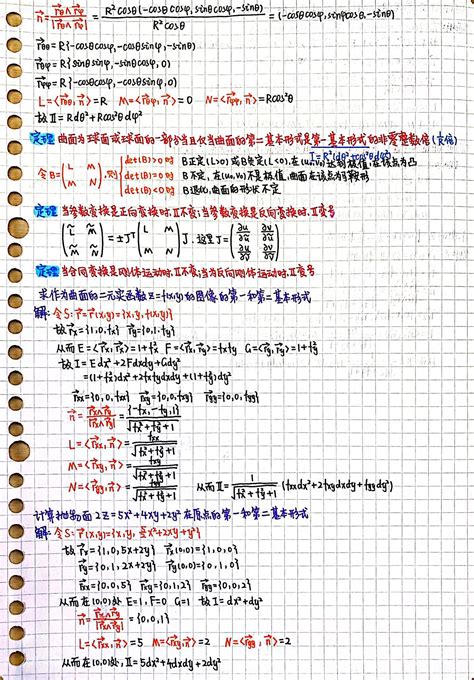 n⃗ = r⃗θ∧r⃗φ / |r⃗θ∧r⃗φ| = R²cosθ{-cosθcosφ, sinθcosφ, -sinθ} / R²cosθ = {-cosθcosφ, sinφcosθ, -sinθ}
r⃗θθ = R{-cosθcosφ, -cosθsinφ, -sinθ}
r⃗θφ = R{sinθsinφ, -sinθcosφ, 0}
r⃗φφ = R{-cosθcosφ, -cosθsinφ, 0}
L = <r⃗θθ, n⃗> = R M = <r⃗θφ, n⃗> = 0 N = <r⃗φφ, n⃗> = Rcos²θ
故 Ⅱ = Rdθ² + Rcos²θdφ²
定理 曲面为球面或球面的一部分当且仅当曲面的第二基本形式是第一基本形式的非零整数倍
I = R²(dθ²+cos²θdφ²)
令 B = (L M / M N), 则 { det(B)>0时 B正定(L>0)或B负定(L<0), 在(u₀,v₀)达到极值, 在该点为凸
det(B)<0时 B不定, 在(u₀,v₀)不是极值, 曲面在该点为马鞍形
det(B)=0时 B退化, 曲面的形状不定
定理 当参数变换是正向变换时, Ⅱ不变; 当参数变换是反向变换时, Ⅱ变号
(L̃ M̃ / M̃ Ñ) = ±Jᵀ(L M / M N)J, 这里 J = (∂u/∂ũ ∂v/∂ũ / ∂u/∂ṽ ∂v/∂ṽ)
定理 当合同变换是刚体运动时, Ⅱ不变; 当为反向刚体运动时, Ⅱ变号
求作为曲面的二元实函数 z=f(x,y) 的图像的第一和第二基本形式
解: 令 S: r⃗=r⃗(x,y)={x, y, f(x,y)}
故 r⃗x = {1, 0, fx} r⃗y = {0, 1, fy}
从而 E = <r⃗x, r⃗x> = 1+fx² F = <r⃗x, r⃗y> = fxfy G = <r⃗y, r⃗y> = 1+fy²
故 I = Edx² + 2Fdxdy + Gdy²
= (1+fx²)dx² + 2fxfydxdy + (1+fy²)dy²
r⃗xx = {0, 0, fxx} r⃗xy = {0, 0, fxy} r⃗yy = {0, 0, fyy}
n⃗ = r⃗x∧r⃗y / |r⃗x∧r⃗y| = {-fx, -fy, 1} / √(fx²+fy²+1)
L = <r⃗xx, n⃗> = fxx / √(fx²+fy²+1)
M = <r⃗xy, n⃗> = fxy / √(fx²+fy²+1)
N = <r⃗yy, n⃗> = fyy / √(fx²+fy²+1) 从而 Ⅱ = 1/√(fx²+fy²+1) (fxxdx² + 2fxydxdy + fyydy²)
计算抛物面 2z = 5x²+4xy+2y² 在原点的第一和第二基本形式
解: 令 S: r⃗(x,y)={x, y, 5/2x²+2xy+y²}
故 r⃗x = {1, 0, 5x+2y} r⃗x(0,0) = {1, 0, 0}
r⃗y = {0, 1, 2x+2y} r⃗y(0,0) = {0, 1, 0}
r⃗xx = {0, 0, 5} r⃗xy = {0, 0, 2} r⃗yy = {0, 0, 2}
从而在(0,0)处 E=1, F=0 G=1 故 I = dx²+dy²
n⃗ = r⃗x∧r⃗y / |r⃗x∧r⃗y| = {0, 0, 1}
L = <r⃗xx, n⃗> = 5 M = <r⃗xy, n⃗> = 2 N = <r⃗yy, n⃗> = 2
从而在(0,0)处, Ⅱ = 5dx²+4dxdy+2dy²